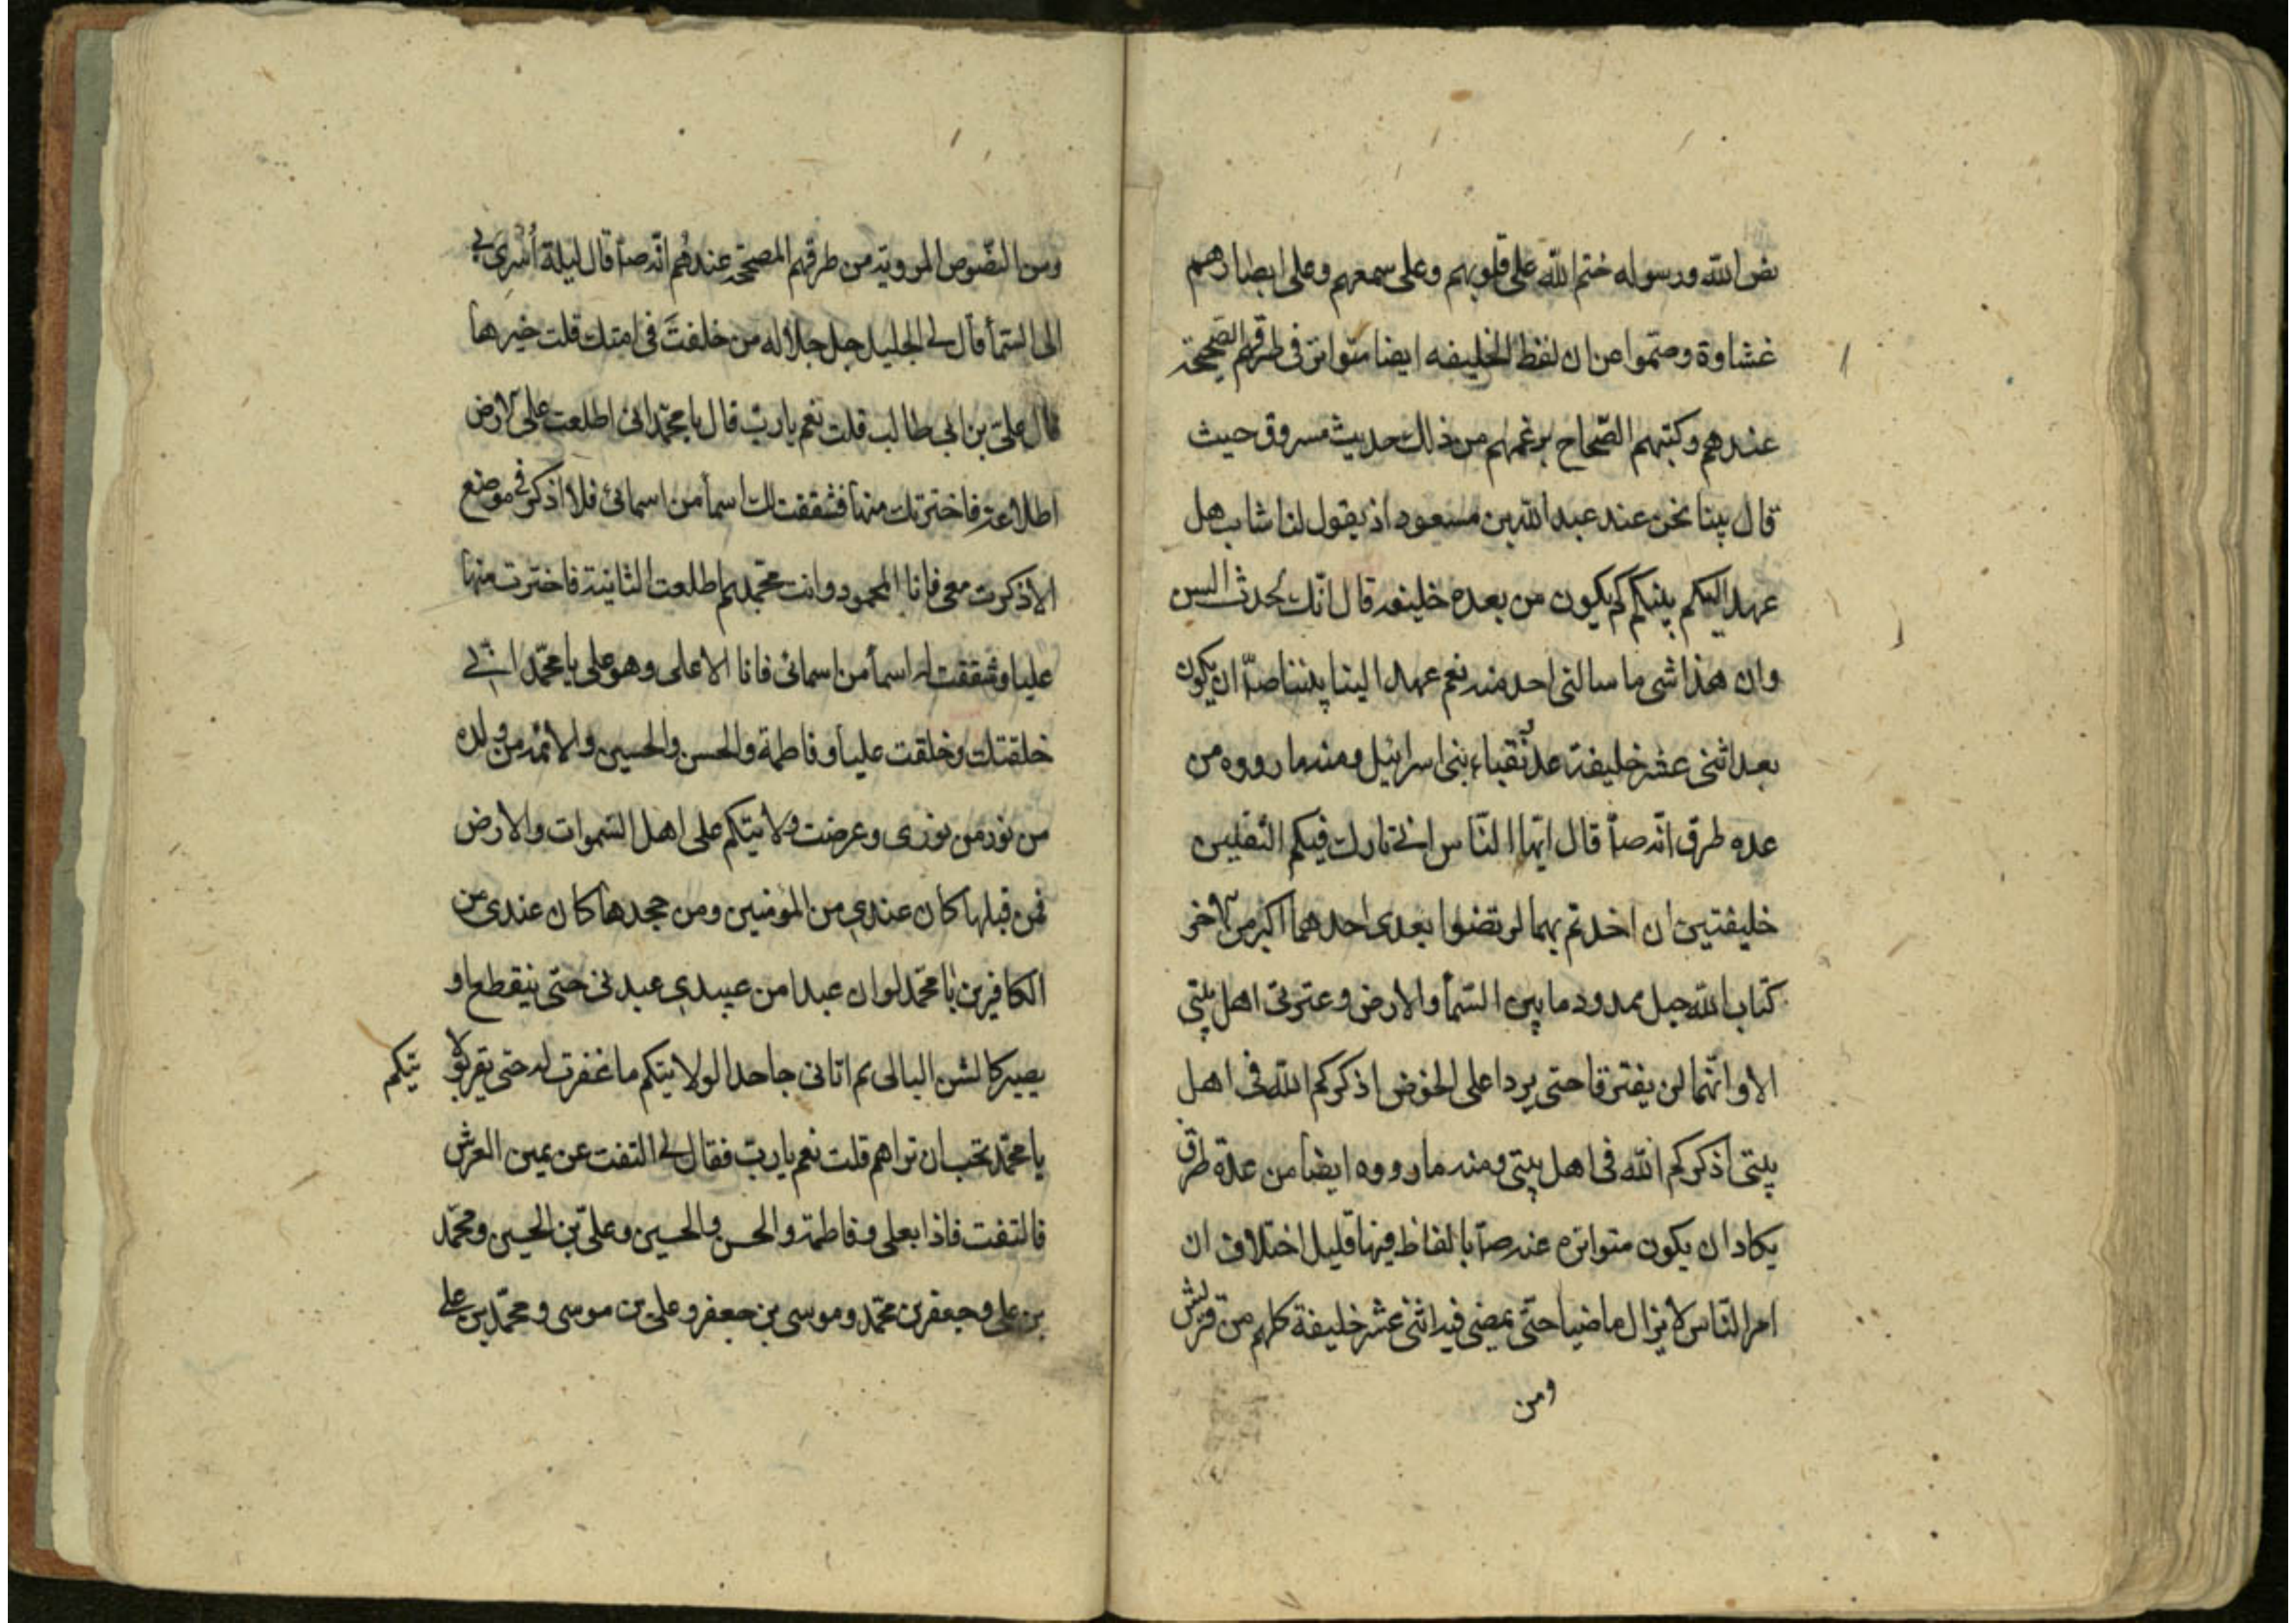 نص الله ورسوله ختم الله على قلوبهم وعلى سمعهم وعلى ابصارهم
غشاوة وصمّوا عن ان لفظ الخليفه ايضا متواتر فى طرقهم الصحيحة
عندهم وكتبهم الصّحاح برغمهم من ذلك حديث مسروق حيث
قال بينا نحن عند عبد الله بن مسعود اذ يقول لنا شاب هل
عهد اليكم بينكم كم يكون من بعده خليفه قال انّك لحدث السن
وان هذا شى ما سالنى احد منه نعم عهد الينا بيننا صلّ ان يكون
بعد اثنى عشر خليفة عدّ نُقباء بنى اسرائيل ومنه ما رووه من
عده طرق انّه صلّ قال ايّها النّاس انى تارك فيكم الثقلين
خليفتين ان اخذتم بهما لن تضلوا بعدى احدهما اكبر من الآخر
كتاب الله حبل ممدود ما بين السّمآ والارض وعترتى اهل بيتى
الا وانّهما لن يفترقا حتى يردا على الحوض اذكركم الله فى اهل
بيتى اذكركم الله فى اهل بيتى ومنه ما رووه ايضا من عدّة طرق
يكاد ان يكون متواتره عنه صلّ بالفاظ فيها قليل اختلاف ان
امر النّاس لا يزال ماضيا حتّى يمضى فيه اثنى عشر خليفة كلهم من قريش
ومن
ومن النّصوص المرويّة من طرقهم المصحّحه عندهُم انّه صلّ قال ليلة اُسْرِىَ بى
الى السّمآ قال لى الجليل جل جلاله من خلفتَ فى امتك قلت خيرها
قال علىّ بن ابى طالب قلت نعم يا ربّ قال يا محمّد انى اطلعت على الارض
اطلاعة فاخترتك منها فشققت لك اسمآ من اسمائى فلا اذكر فى موضع
الا ذكرت معى فانا المحمود وانت محمّد ثم اطلعت الثانية فاخترت منها
عليا وشققت له اسمآ من اسمائى فانا الاعلى وهو على يا محمّد انّى
خلقتك وخلقت عليا وفاطمة والحسن والحسين والائمّه من ولده
من نور من نورى وعرضت ولايتكم على اهل السّموات والارض
فمن قبلها كان عندى من المؤمنين ومن جحدها كان عندى من
الكافرين يا محمّد لو ان عبدا من عبيدى عبدنى حتى ينقطع او
يصير كالشن البالى ثم اتانى جاحدا لولايتكم ما غفرت له حتى يقر بولا يتكم
يا محمّد تحب ان تراهم قلت نعم يا ربّ فقال لى التفت عن يمين العرش
فالتفت فاذا بعلى وفاطمة والحسن والحسين وعلىّ بن الحسين ومحمّد
بن على وجعفر بن محمّد وموسى بن جعفر وعلى بن موسى ومحمّد بن على